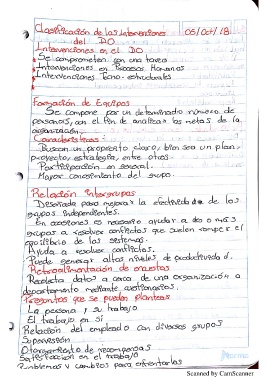 Clasificación de las Intervenciones 05/Oct/18
del DO
Intervenciones en el DO
Se comprometen con una tarea
Intervenciones en Procesos Humanos
Intervenciones Tecno-estructurales
Formación de Equipos
Se compone por un determinado número de
personas, con el fin de analizar las metas de la
organización.
Características:
Buscan un propósito claro, bien sea un plan,
proyecto, estrategia, entre otros.
Participación en general.
Mayor conocimiento del grupo.
Relación Intergrupos
Diseñada para mejorar la efectividad de los
grupos independientes.
En ocasiones es necesario ayudar a dos o más
grupos a resolver conflictos que suelen romper el
equilibrio de los sistemas.
Ayuda a resolver conflictos.
Puede generar altos niveles de productividad.
Retroalimentación de encuestas
Recolecta datos acerca de una organización o
departamento mediante cuestionarios.
Preguntas que se pueden plantear
La persona y su trabajo
El trabajo en sí
Relación del empleado con diversos grupos
Supervisión
Otorgamiento de recompensas
Satisfacción en el trabajo
Problemas y cambios para enfrentarlos
Norma
Scanned by CamScanner